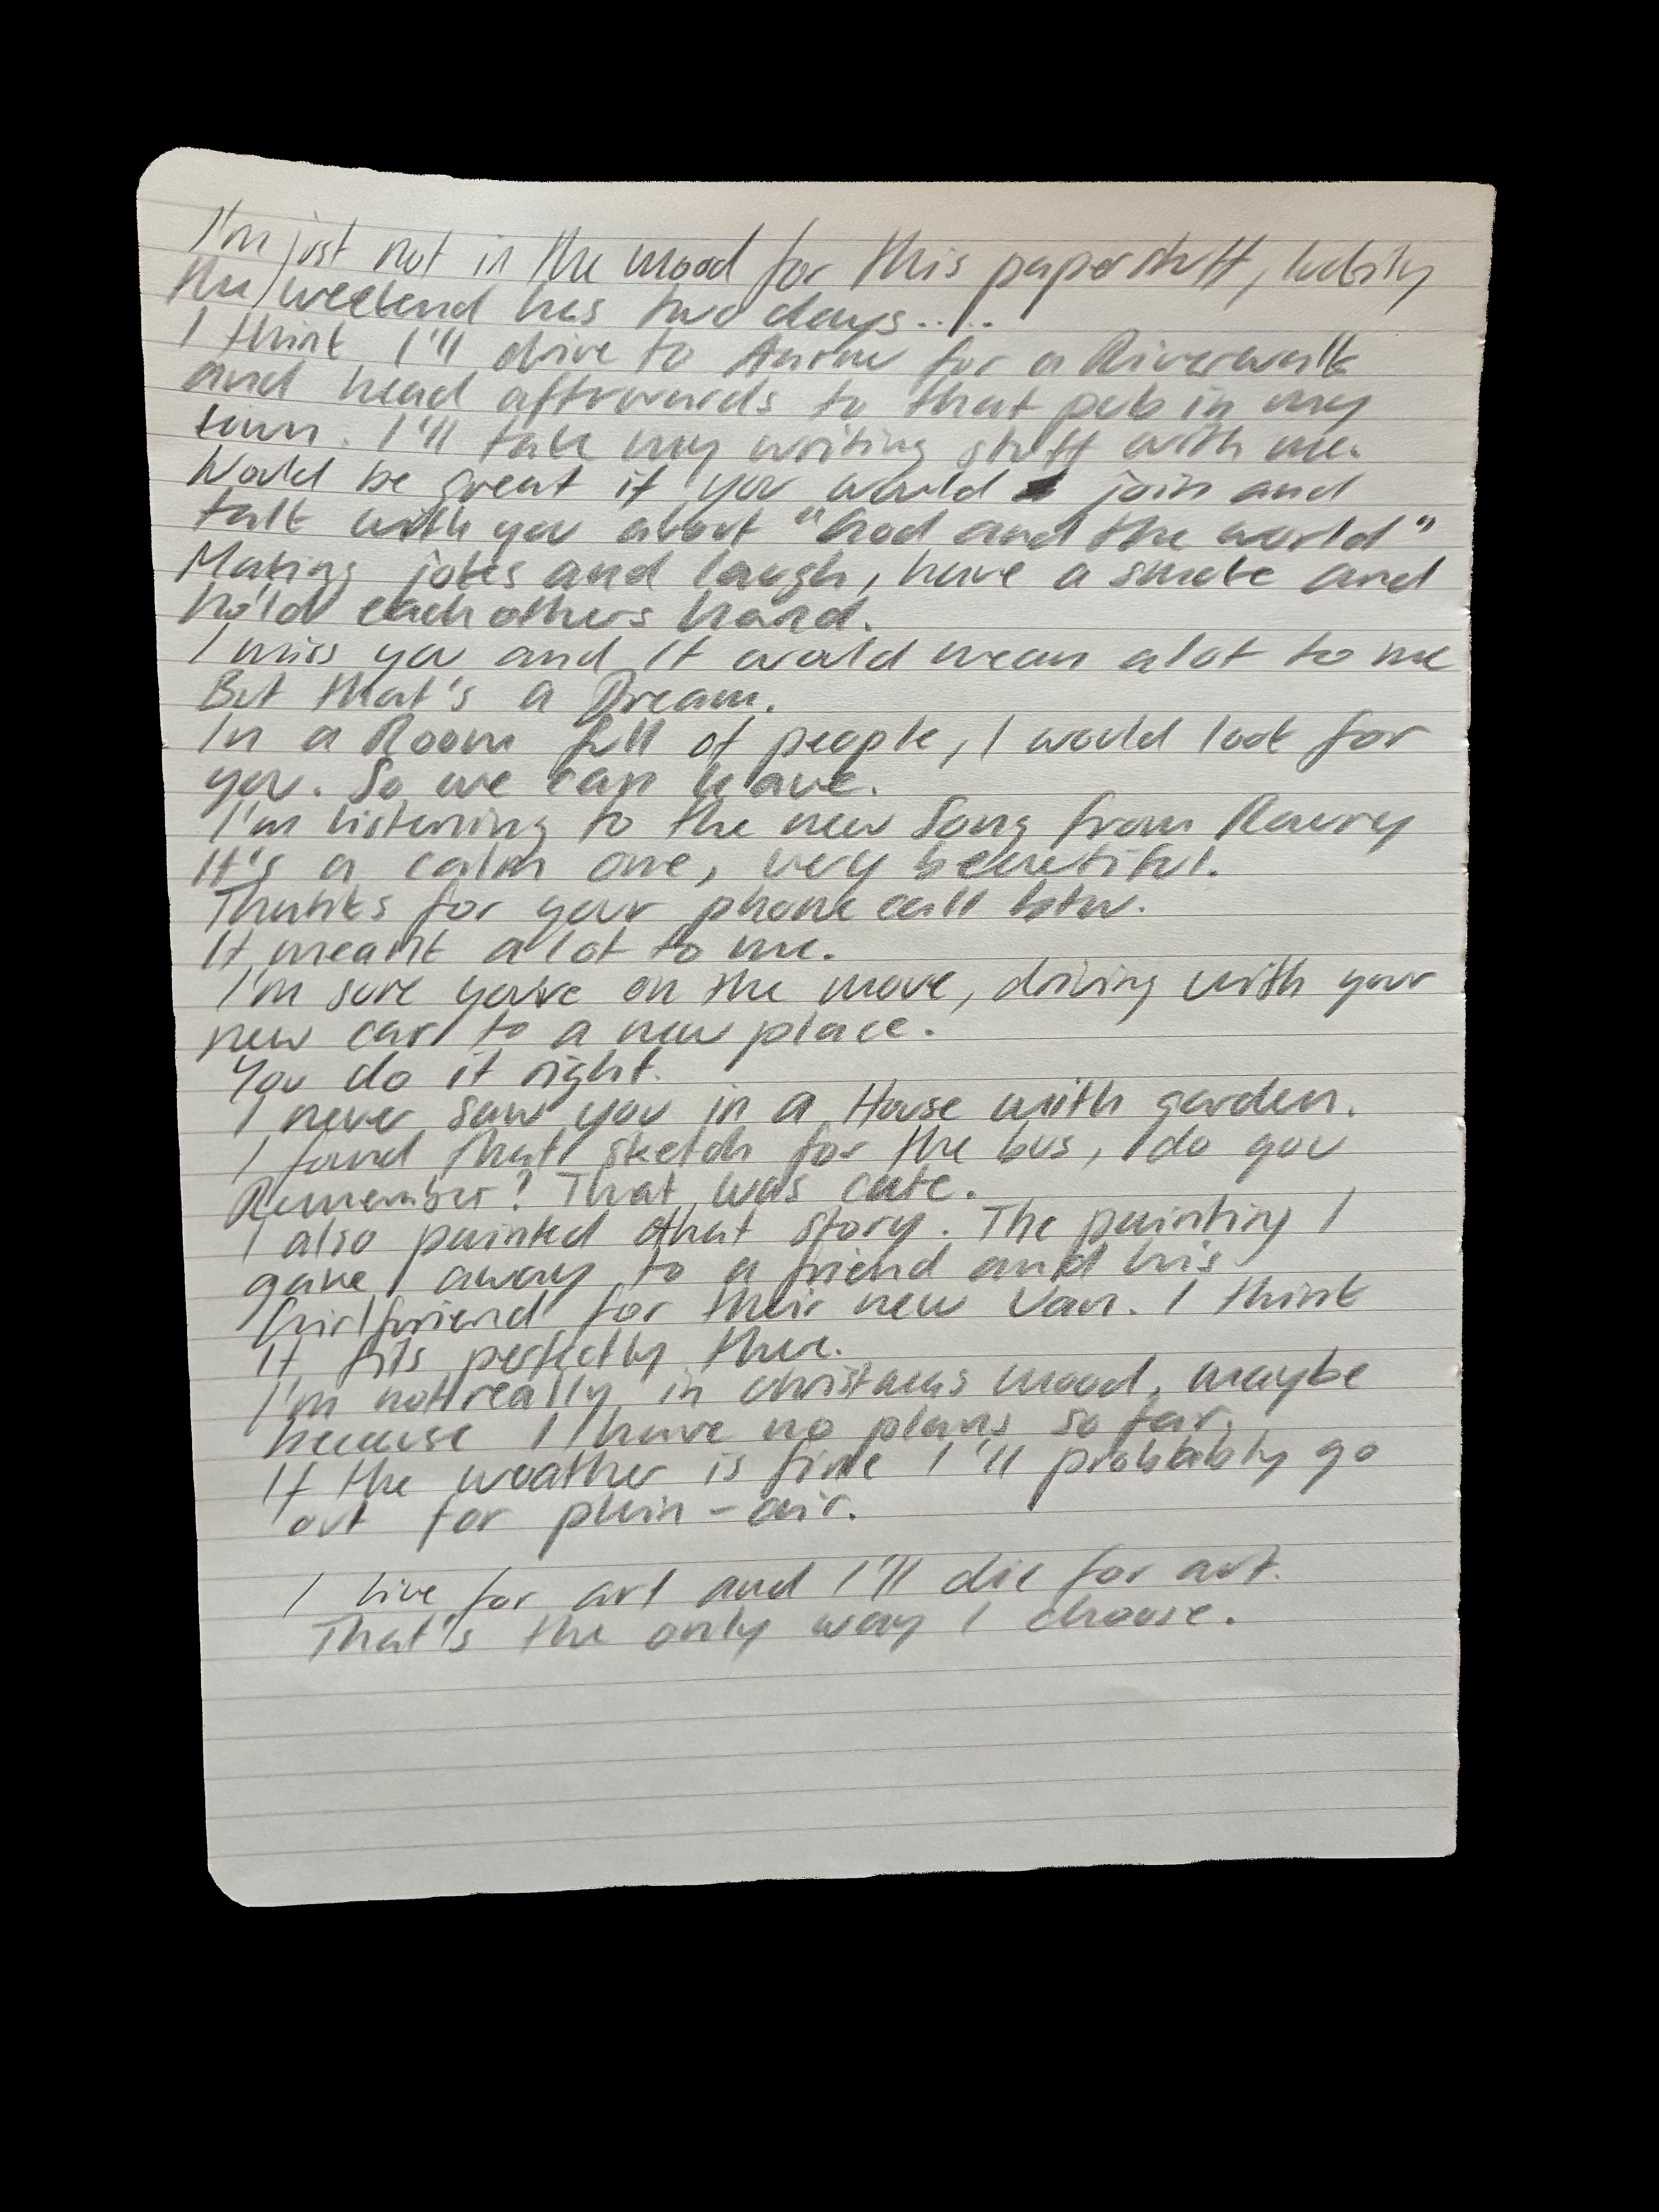 I'm just not in the mood for this paperstuff, luckily
the weekend has two days.....
I think I'll drive to for a Riverwalk
and head aftrwards to that pub in my
town. I'll take my writing stuff with me.
Would be great if you would join and
talk with you about "God and the world"
Making jokes and laugh, have a smoke and
hold eachothers hand.
I miss you and it would mean alot to me
But that's a Dream.
In a Room full of people, I would look for
you. So we can leave.
I'm listening to the new Song from
It's a calm one, very beautiful.
Thanks for your phone call btw.
It meant alot to me.
I'm sure you're on the move, driving with your
new car to a new place.
You do it right.
I never saw you in a House with garden.
I found that sketch for the bus, do you
Remember? That was cute.
I also painted that story. The painting I
gave away to a friend and his
Girlfriend for their new Van. I think
It fits perfectly there.
I'm not really in christmas mood, maybe
because I have no plans so far.
If the weather is fine I'll probably go
out for plein-air.
I live for art and I'll die for art.
That's the only way I choose.